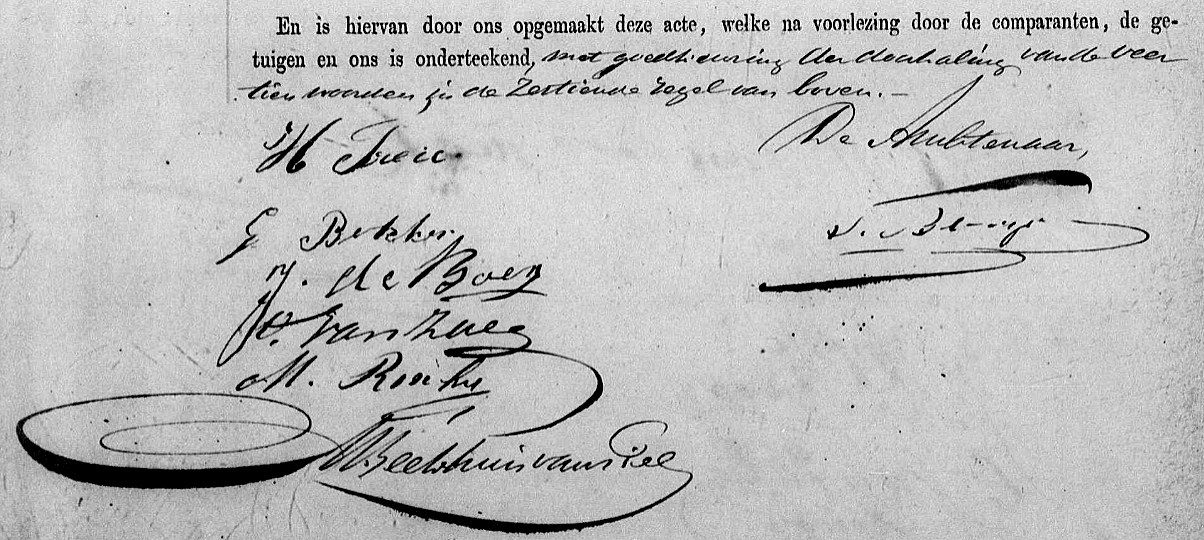 En is hiervan door ons opgemaakt deze acte, welke na voorlezing door de comparanten, de ge-
tuigen en ons is onderteekend, met goedkeuring der doorhaling van de veer
tien woorden in de zestiende regel van boven. —
H
De Ambtenaar,
G Bekker
J. de Boer
van
M.